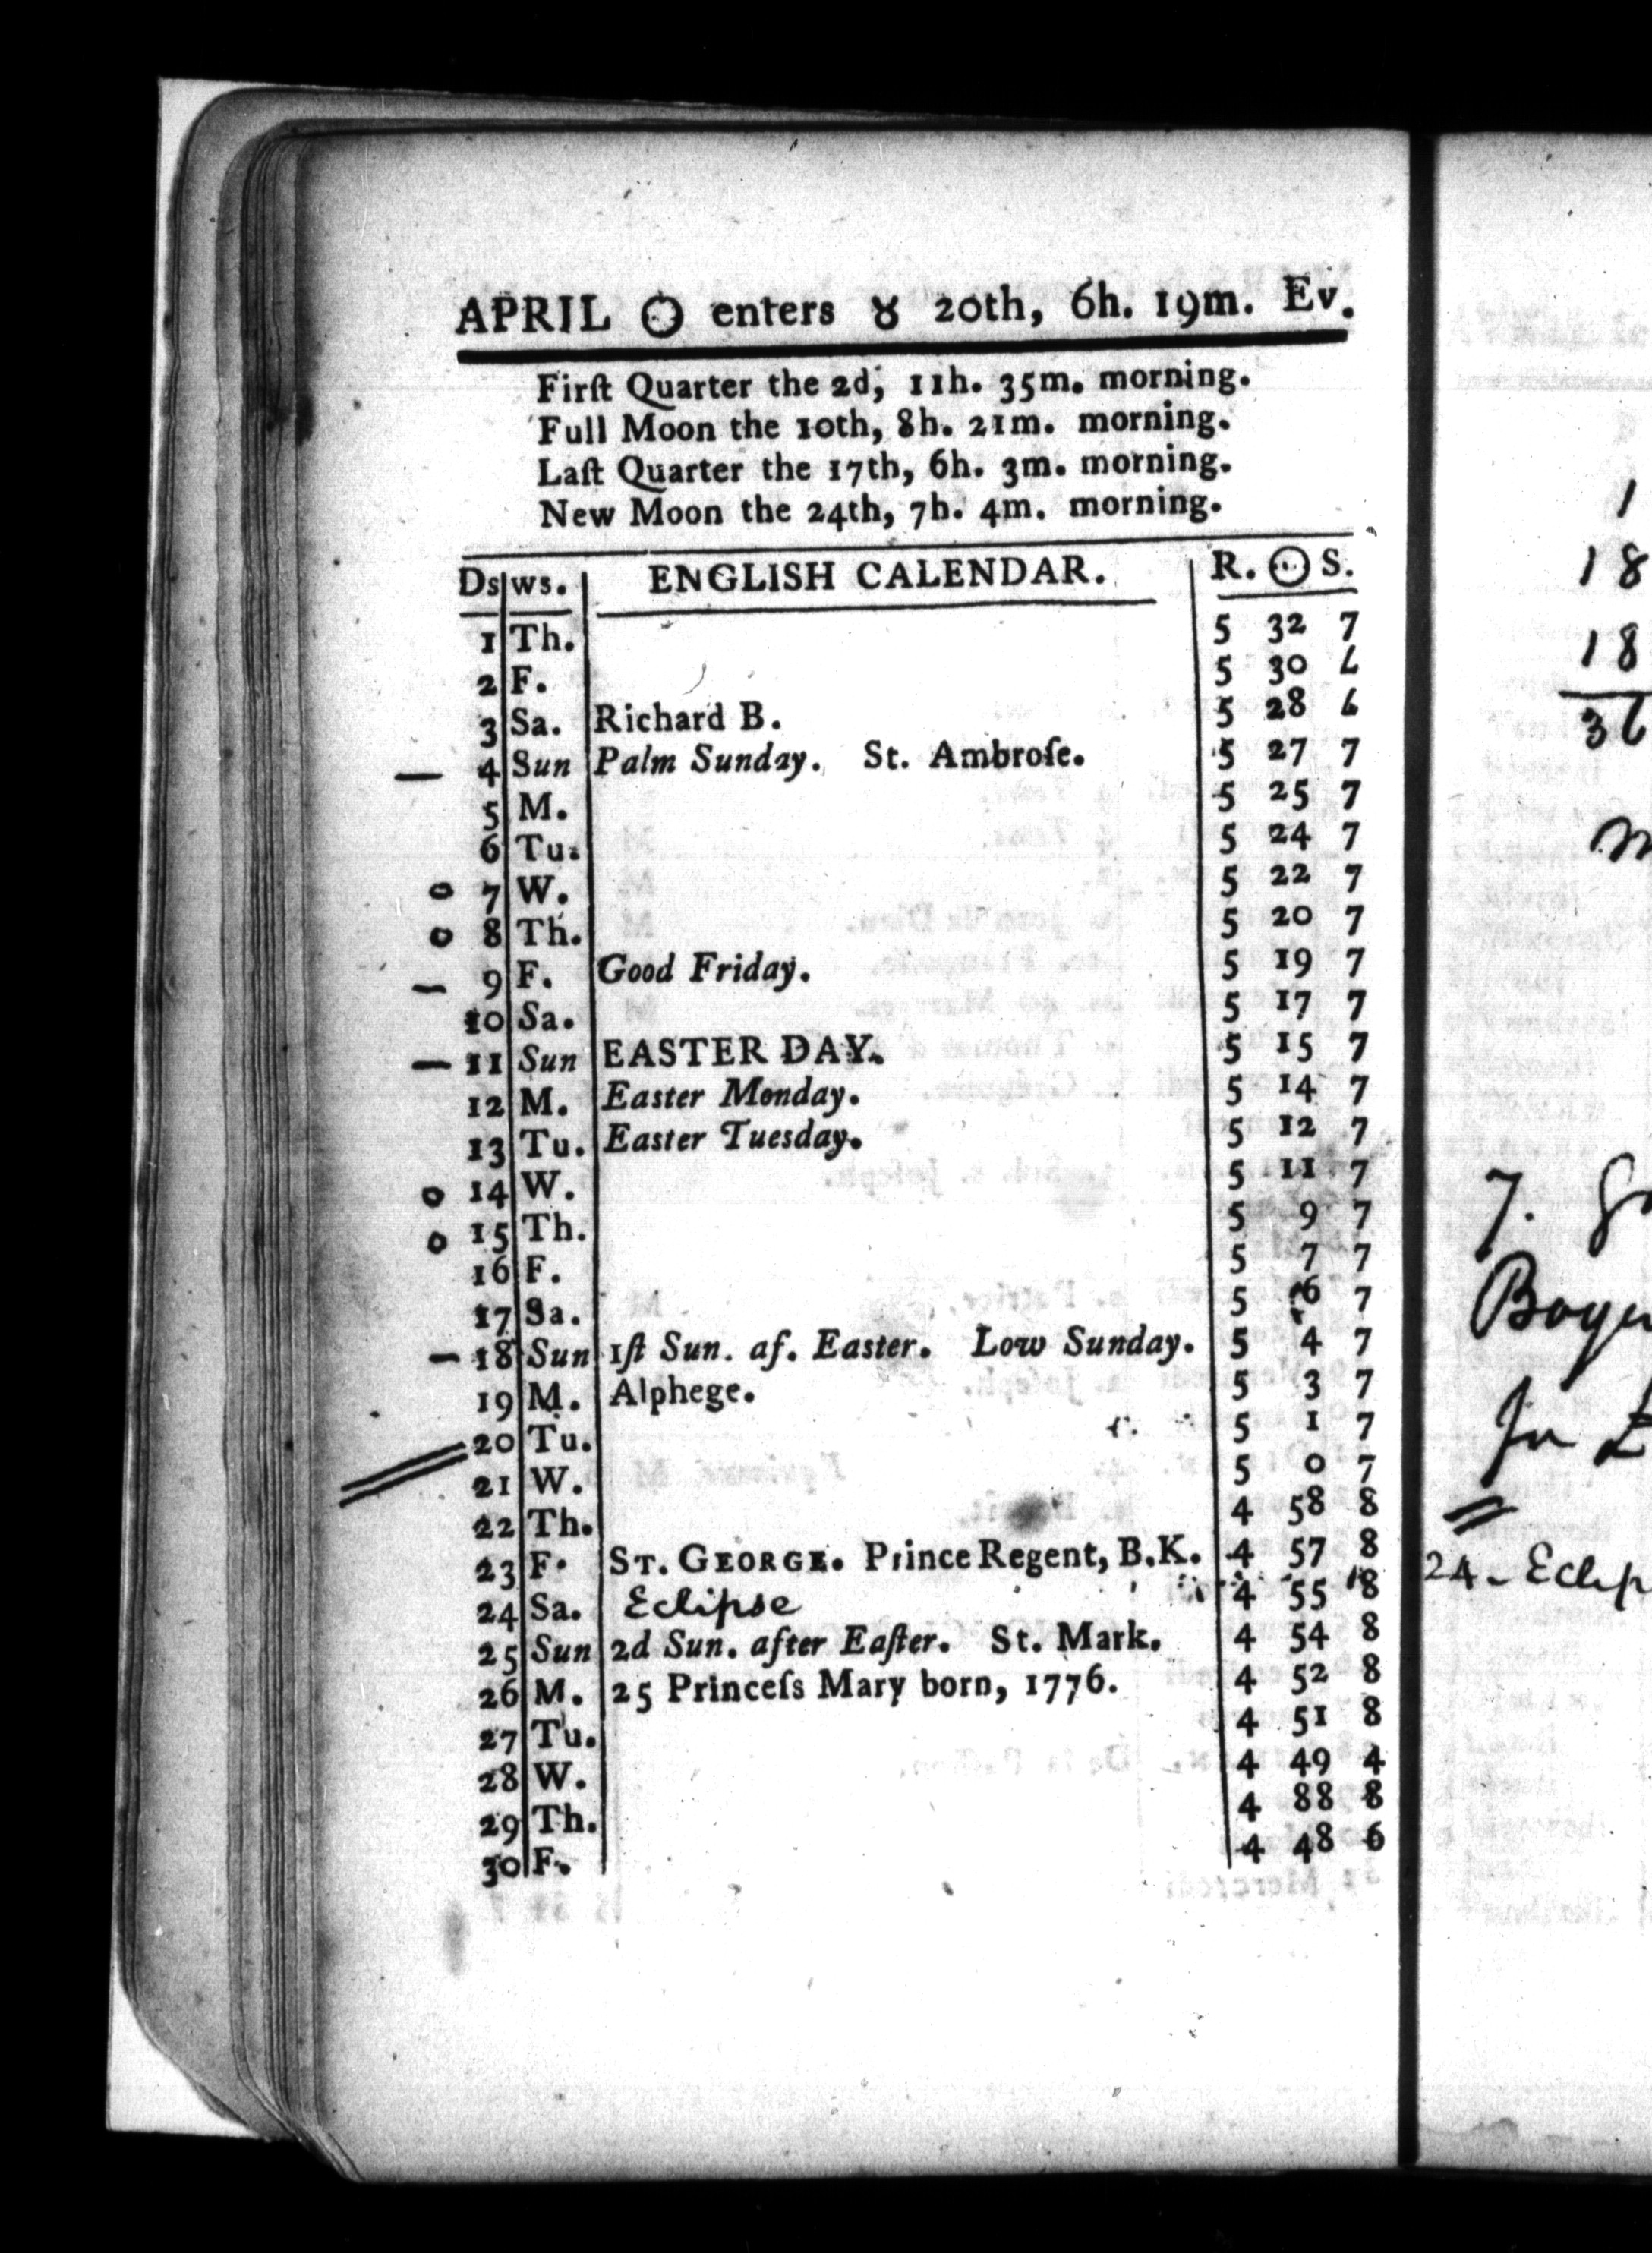 APRIL ☉ enters ♉ 20th, 6h. 19m. Ev.
Firſt Quarter the 2d, 11h. 35m. morning.
Full Moon the 10th, 8h. 21m. morning.
Laſt Quarter the 17th, 6h. 3m. morning.
New Moon the 24th, 7h. 4m. morning.
Ds ws. ENGLISH CALENDAR. R. ☉ S.
1 Th. 5 32 7
2 F. 5 30
3 Sa. Richard B. 5 28
— 4 Sun Palm Sunday. St. Ambroſe. 5 27 7
5 M. 5 25 7
6 Tu. 5 24 7
o 7 W. 5 22 7
o 8 Th. 5 20 7
— 9 F. Good Friday. 5 19 7
10 Sa. 5 17 7
— 11 Sun EASTER DAY. 5 15 7
12 M. Easter Monday. 5 14 7
13 Tu. Easter Tuesday. 5 12 7
o 14 W. 5 11 7
o 15 Th. 5 9 7
16 F. 5 7 7
17 Sa. 5 6 7
— 18 Sun 1ſt Sun. af. Easter. Low Sunday. 5 4 7
19 M. Alphege. 5 3 7
20 Tu. 5 1 7
21 W. 5 0 7
22 Th. 4 58 8
23 F. ST. GEORGE. Prince Regent, B.K. 4 57 8
24 Sa. Eclipse 4 55 8
25 Sun 2d Sun. after Eaſter. St. Mark. 4 54 8
26 M. 25 Princeſs Mary born, 1776. 4 52 8
27 Tu. 4 51 8
28 W. 4 49 4
29 Th. 4 88 8
30 F. 4 48 6
1
18
18
36
7.
24 - Eclip